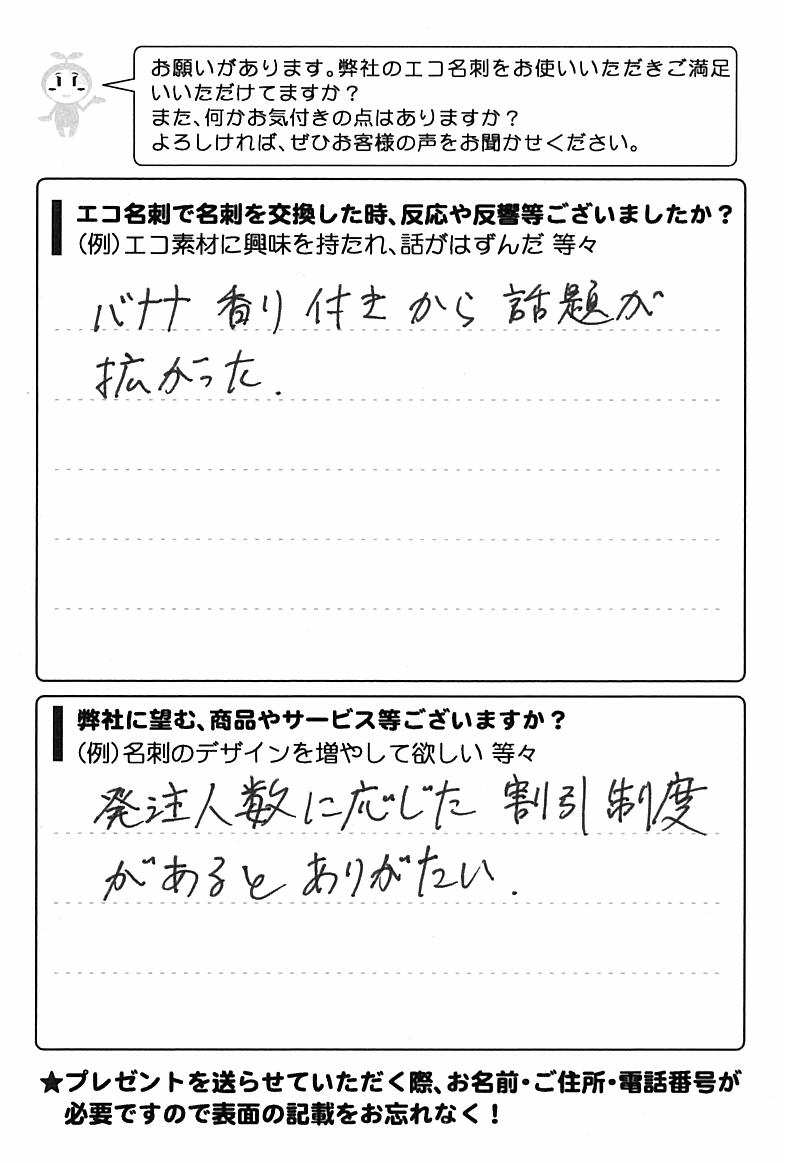 お願いがあります。弊社のエコ名刺をお使いいただきご満足
いいただけてますか？
また、何かお気付きの点はありますか？
よろしければ、ぜひお客様の声をお聞かせください。
エコ名刺で名刺を交換した時、反応や反響等ございましたか？
（例）エコ素材に興味を持たれ、話がはずんだ 等々
バナナ 香り付きから話題が
拡がった.
弊社に望む、商品やサービス等ございますか？
（例）名刺のデザインを増やして欲しい 等々
発注人数に応じた 割引制度
があるとありがたい.
★プレゼントを送らせていただく際、お名前・ご住所・電話番号が
必要ですので表面の記載をお忘れなく！